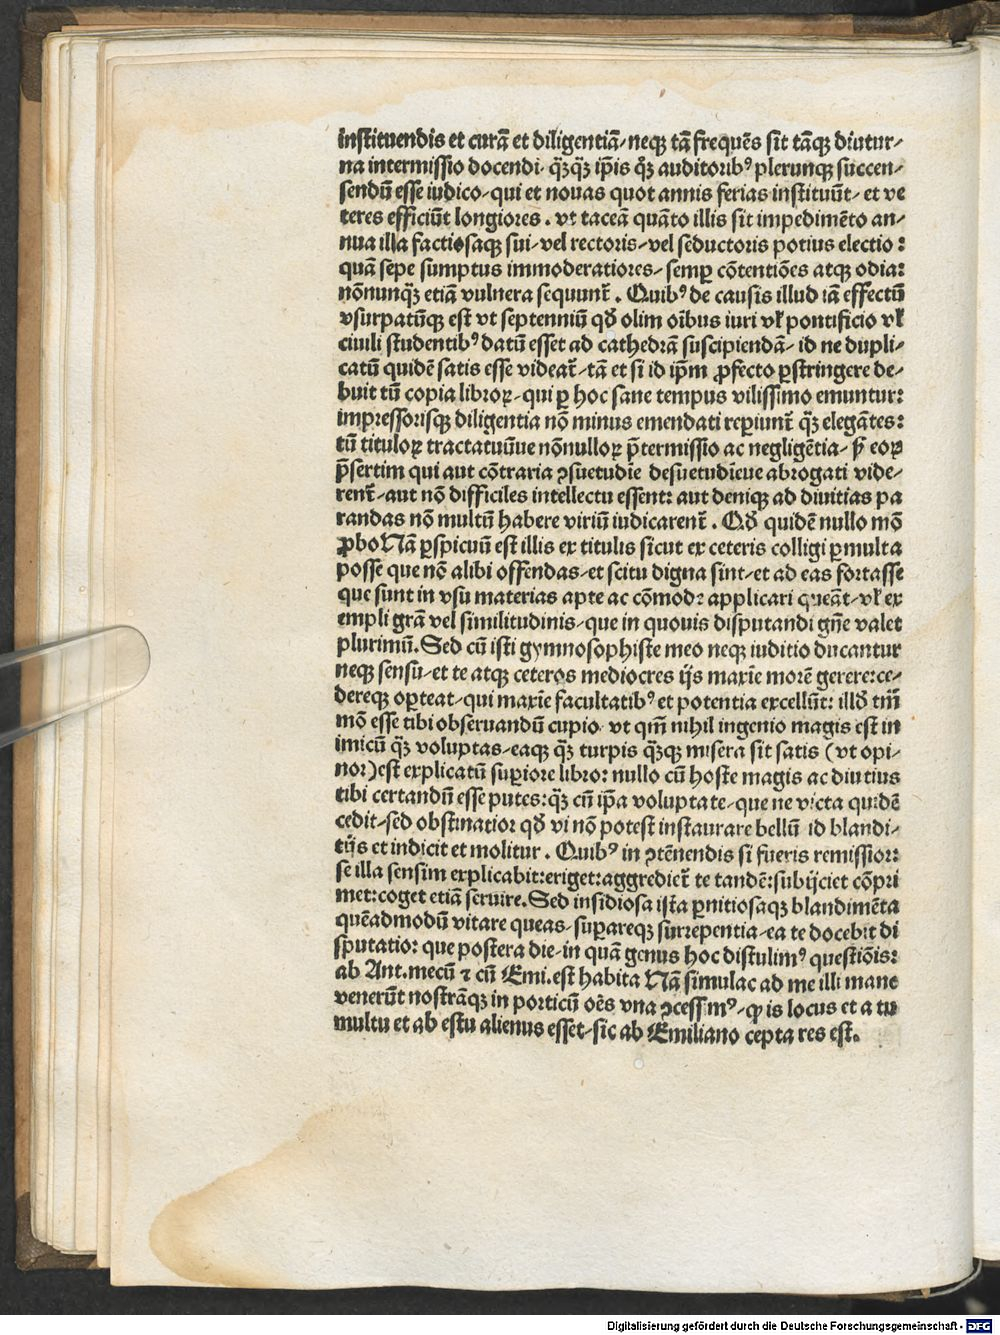 instituendis et curā et diligentiā/neqꝫ tā frequēs sit tāqꝫ diutur/
na intermissio docendi· q̄ꝫq̄ꝫ ip̄is q̄ꝫ auditoribꝰ plerunqꝫ succen/
sendū esse iudico/qui et nouas quot annis ferias instituūt/et ve
teres efficiūt longiores. vt taceā quāto illis sit impedimēto an/
nua illa factiosaqꝫ sui/vel rectoris/vel seductoris potius electio:
quā sepe sumptus immoderatiores/semꝑ cōtentiōes atqꝫ odia:
nōnunqꝫ̄ etiā vulnera sequunt̄. Quibꝰ de causis illud iā effectū
vsurpatūqꝫ est vt septenniū qđ olim oībus iuri vł pontificio vł
ciuili studentibꝰ datū esset ad cathedrā suscipiendā/id ne dupli/
catū quidē satis esse videat̄/tā et si id ip̄m ꝓfecto ꝑstringere de/
buit tū copia libroꝝ/qui ꝑ hoc sane tempus vilissimo emuntur:
impressorisqꝫ diligentia nō minus emendati reꝑiunt̄ q̄ꝫ elegātes:
tū tituloꝝ tractatuūue nōnulloꝝ p̄termissio ac negligētia/ꝑ̄ eoꝝ
p̄sertim qui aut cōtraria ꝯsuetudīe desuetudīeue abrogati vide/
rent̄/aut nō difficiles intellectu essent: aut deniqꝫ ad diuitias pa
randas nō multū habere viriū iudicarent̄. Qđ quidē nullo mō
ꝓbo Nā ꝑspicuū est illis ex titulis sicut ex ceteris colligi ꝑmulta
posse que nō alibi offendas/et scitu digna sint/et ad eas fortasse
que sunt in vsu materias apte ac cōmode applicari queāt/vł ex
empli grā vel similitudinis/que in quouis disputandi gn̄e valet
plurimū. Sed cū isti gymnosophiste meo neqꝫ iuditio ducantur
neqꝫ sensu/et te atqꝫ ceteros mediocres ijs maxīe morē gerere: ce/
dereqꝫ oꝑteat/qui maxīe facultatibꝰ et potentia excellūt: illđ tm̄
mō esse tibi obseruandū cupio· vt qm̄ nihil ingenio magis est in
imicū q̄ꝫ voluptas/eaqꝫ q̄ꝫ turpis q̄ꝫqꝫ misera sit satis (vt opi/
nor) est explicatū suꝑiore libro: nullo cū hoste magis ac diutius
tibi certandū esse putes: q̄ꝫ cū ip̄a voluptate/que ne victa quidē
cedit/sed obstinatior qđ vi nō potest instaurare bellū id blandi/
tijs et indicit et molitur. Quibꝰ in ꝯtēnendis si fueris remissior:
se illa sensim explicabit: eriget: aggrediet̄ te tandē: subijciet cōpri
met: coget etiā seruire. Sed insidiosa ista ꝑnitiosaqꝫ blandimēta
quēadmodū vitare queas/suꝑareqꝫ surrepentia/ea te docebit di
sputatio: que postera die/in quā genus hoc distulimꝰ questiōis:
ab Ant. mecū ⁊ cū Emi. est habita Nā simulac ad me illi mane
venerūt nostrāqꝫ in porticū oēs vna ꝯcessimꝰ/ꝙ is locus et a tu
multu et ab estu alienus esset/sic ab Emiliano cepta res est.
Digitalisierung gefördert durch die Deutsche Forschungsgemeinschaft - DFG